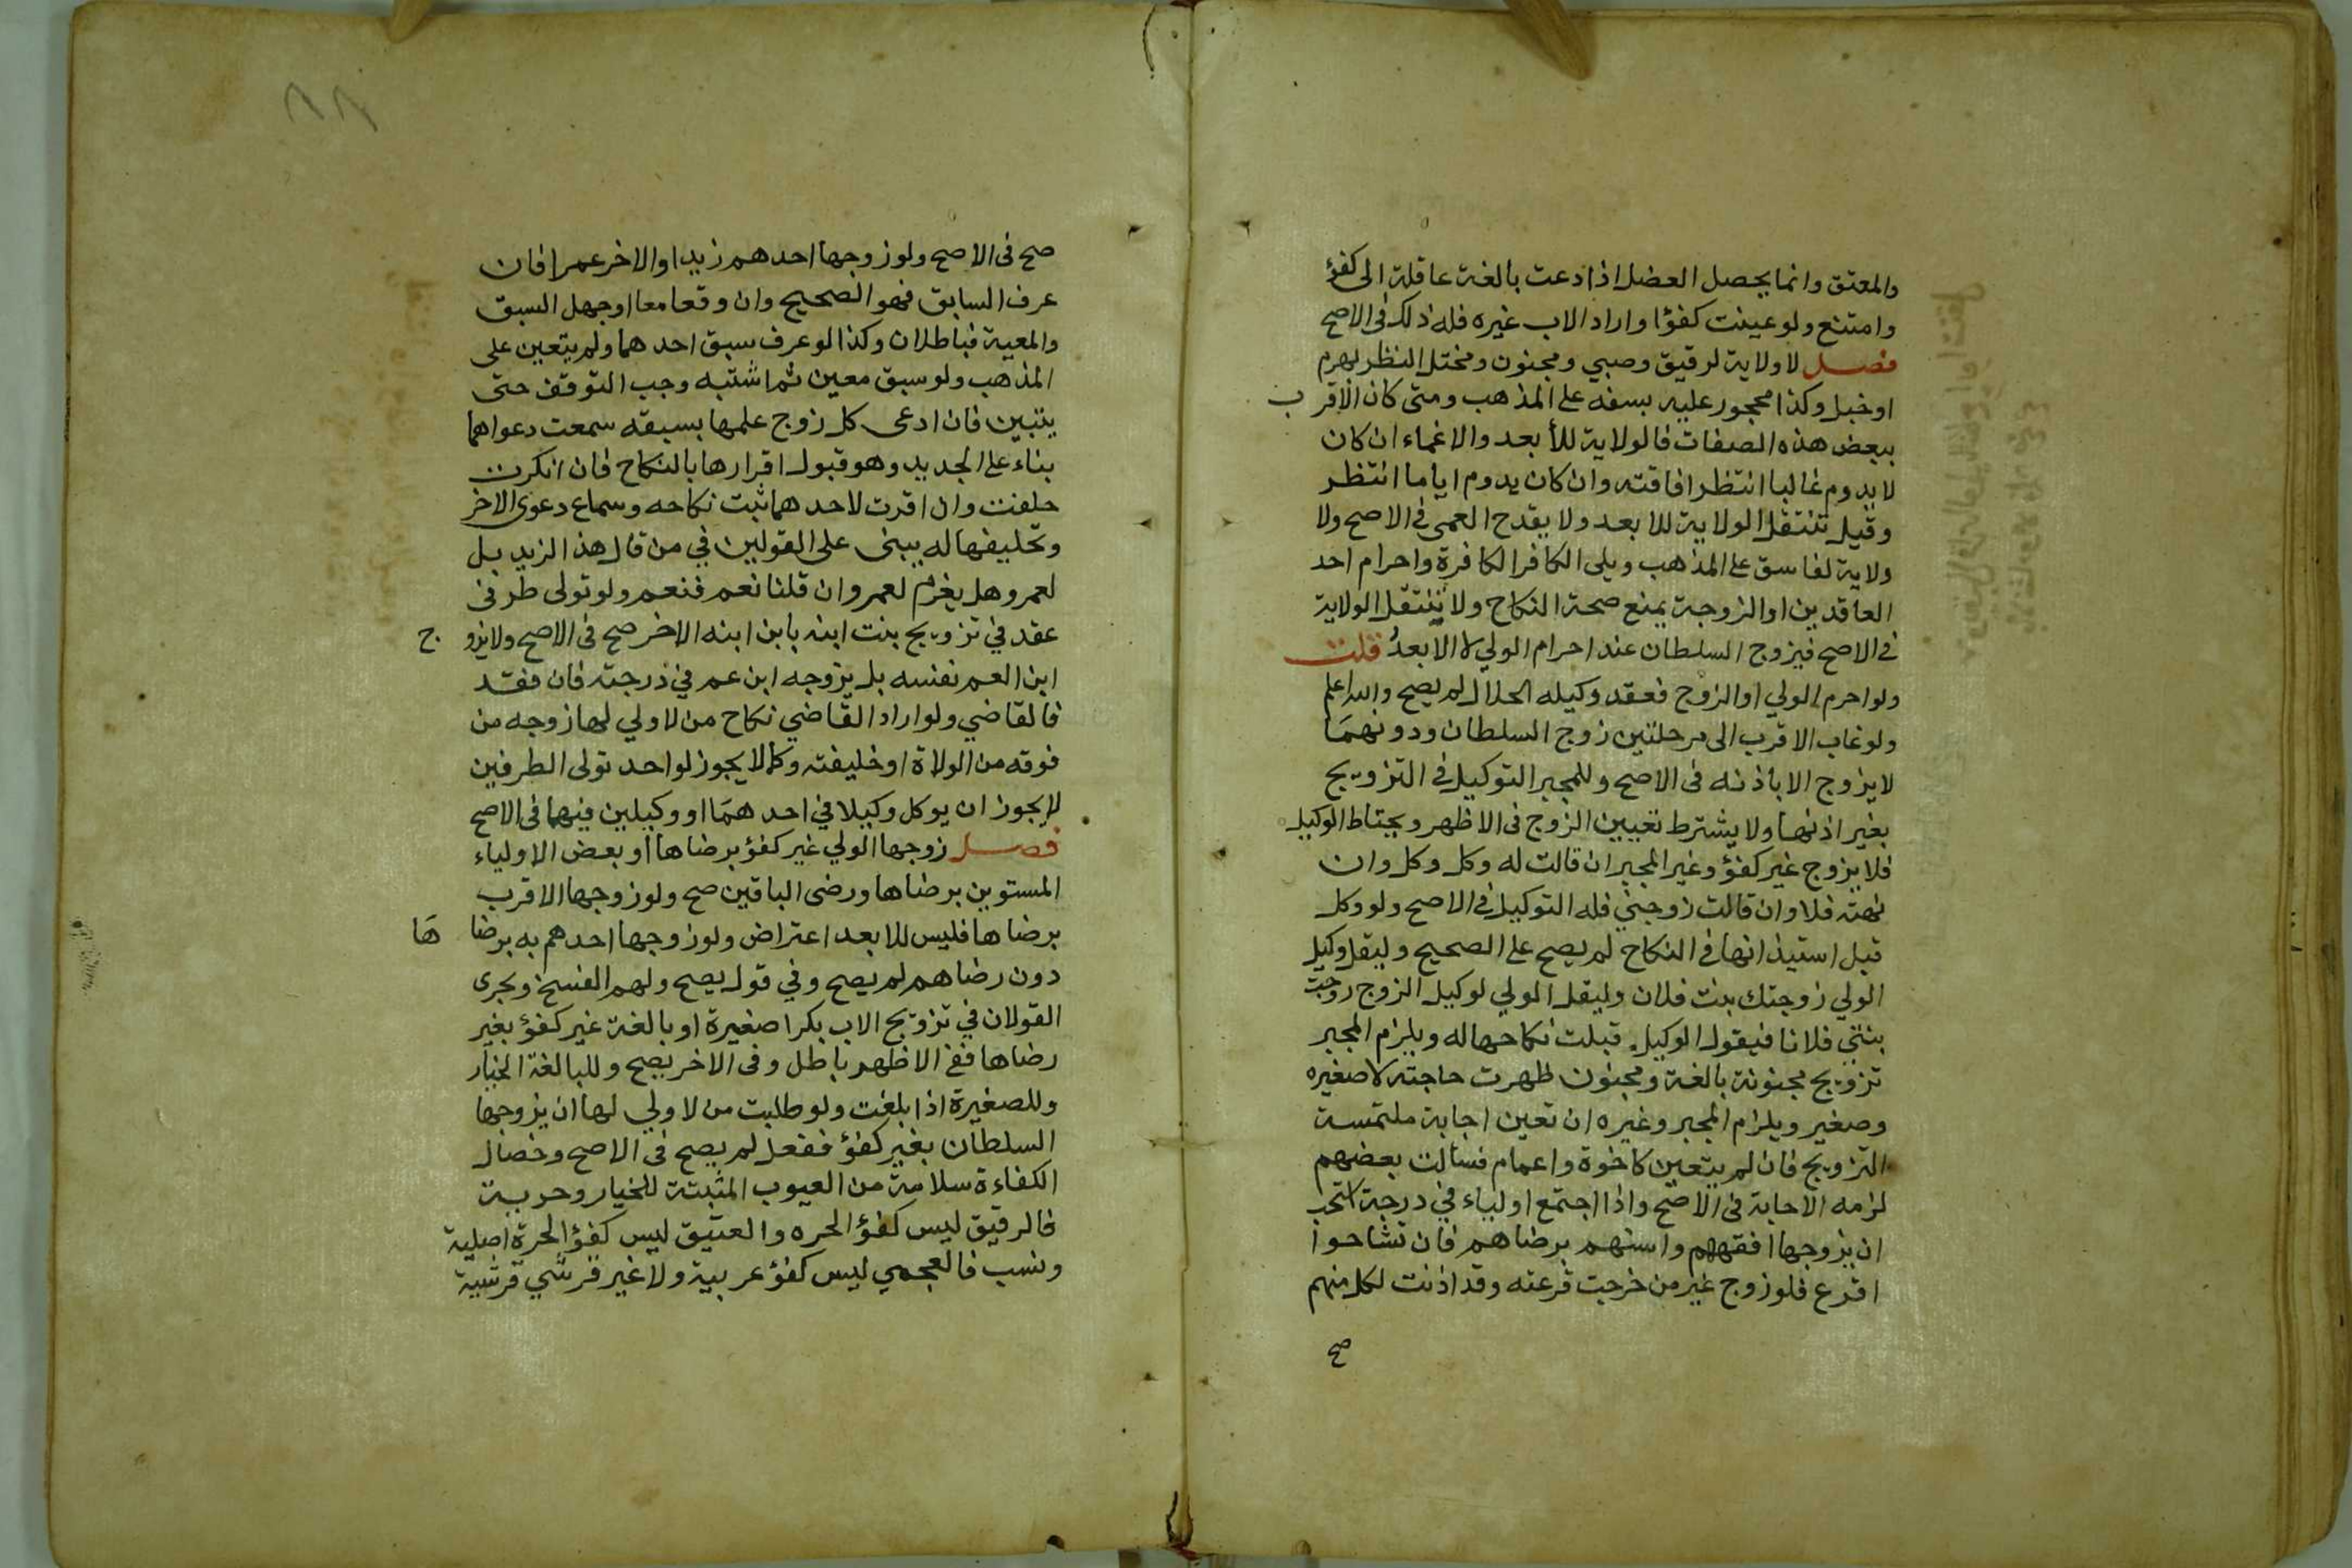 والمعتق وانما يحصل العضل اذا دعت بالغة عاقلة الى كفؤ
وامتنع ولو عينت كفؤا واراد الاب غيره فله ذلك فى الاصح
فصل لا ولاية لرقيق وصبي ومجنون ومختل النظر بهرم
او خبل وكذا محجور عليه بسفه على المذهب ومتى كان الاقرب
ببعض هذه الصفات فالولاية للأبعد والاغماء ان كان
لا يدوم غالبا انتظر افاقته وان كان يدوم اياما انتظر
وقيل تنتقل الولاية للابعد ولا يقدح العمى في الاصح ولا
ولاية لفاسق على المذهب ويلى الكافر الكافرة واحرام احد
العاقدين او الزوجة يمنع صحة النكاح ولا تنتقل الولاية
في الاصح فيزوج السلطان عند احرام الولي لا الابعد قلت
ولو احرم الولي او الزوج فعقد وكيله الحلال لم يصح والله اعلم
ولو غاب الاقرب الى مرحلتين زوج السلطان ودونهما
لا يزوج الا باذنه فى الاصح وللمجبر التوكيل في التزويج
بغير اذنها ولا يشترط تعيين الزوج فى الاظهر ويحتاط الوكيل
فلا يزوج غير كفؤ وغير المجبر ان قالت له وكل وكل وان
نهته فلا وان قالت زوجني فله التوكيل في الاصح ولو وكل
قبل استيذانها فى النكاح لم يصح على الصحيح وليقل وكيل
الولي زوجتك بنت فلان وليقل الولي لوكيل الزوج زوجت
بنتي فلانا فيقول الوكيل قبلت نكاحها له ويلزم المجبر
تزويج مجنونة بالغة ومجنون ظهرت حاجته لا صغيره
وصغير ويلزم المجبر وغيره ان تعين اجابة ملتمسة
التزويج فان لم يتعين كاخوة واعمام فسألت بعضهم
لزمه الاجابة فى الاصح واذا اجتمع اولياء في درجة استحب
ان يزوجها افقههم واسنهم برضاهم فان تشاحوا
اقرع فلو زوج غير من خرجت قرعته وقد اذنت لكل منهم
صح
صح فى الاصح ولو زوجها احدهم زيدا والاخر عمرا فان
عرف السابق فهو الصحيح وان وقعا معا او جهل السبق
والمعية فباطلان وكذا لو عرف سبق احدهما ولم يتعين على
المذهب ولو سبق معين ثم اشتبه وجب التوقف حتى
يتبين فان ادعى كل زوج علمها بسبقه سمعت دعواهما
بناء على الجديد وهو قبول اقرارها بالنكاح فان انكرت
حلفت وان اقرت لاحدهما ثبت نكاحه وسماع دعوى الاخر
وتحليفها له يبنى على القولين في من قال هذا لزيد بل
لعمرو هل يغرم لعمرو ان قلنا نعم فنعم ولو تولى طرفى
عقد في تزويج بنت ابنه بابن ابنه الاخر صح فى الاصح ولا يزوج
ابن العم نفسه بل يزوجه ابن عم في ذرجته فان فقد
فالقاضي ولو اراد القاضي نكاح من لا ولي لها زوجه من
فوقه من الولاة او خليفته وكما لا يجوز لواحد تولى الطرفين
لا يجوز ان يوكل وكيلا في احدهما او وكيلين فيهما فى الاصح
فصل زوجها الولي غير كفؤ برضاها او بعض الاولياء
المستوين برضاها ورضى الباقين صح ولو زوجها الاقرب
برضاها فليس للابعد اعتراض ولو زوجها احدهم به برضاها
دون رضاهم لم يصح وفي قول يصح ولهم الفسخ ويجرى
القولان في تزويج الاب بكرا صغيرة او بالغة غير كفؤ بغير
رضاها ففي الاظهر باطل وفى الاخر يصح وللبالغة الخيار
وللصغيرة اذا بلغت ولو طلبت من لا ولي لها ان يزوجها
السلطان بغير كفؤ ففعل لم يصح فى الاصح وخصال
الكفاءة سلامة من العيوب المثبتة للخيار وحرية
فالرقيق ليس كفؤ الحره والعتيق ليس كفؤ الحرة اصلية
ونسب فالعجمي ليس كفؤ عربية ولا غير قرشي قرشية